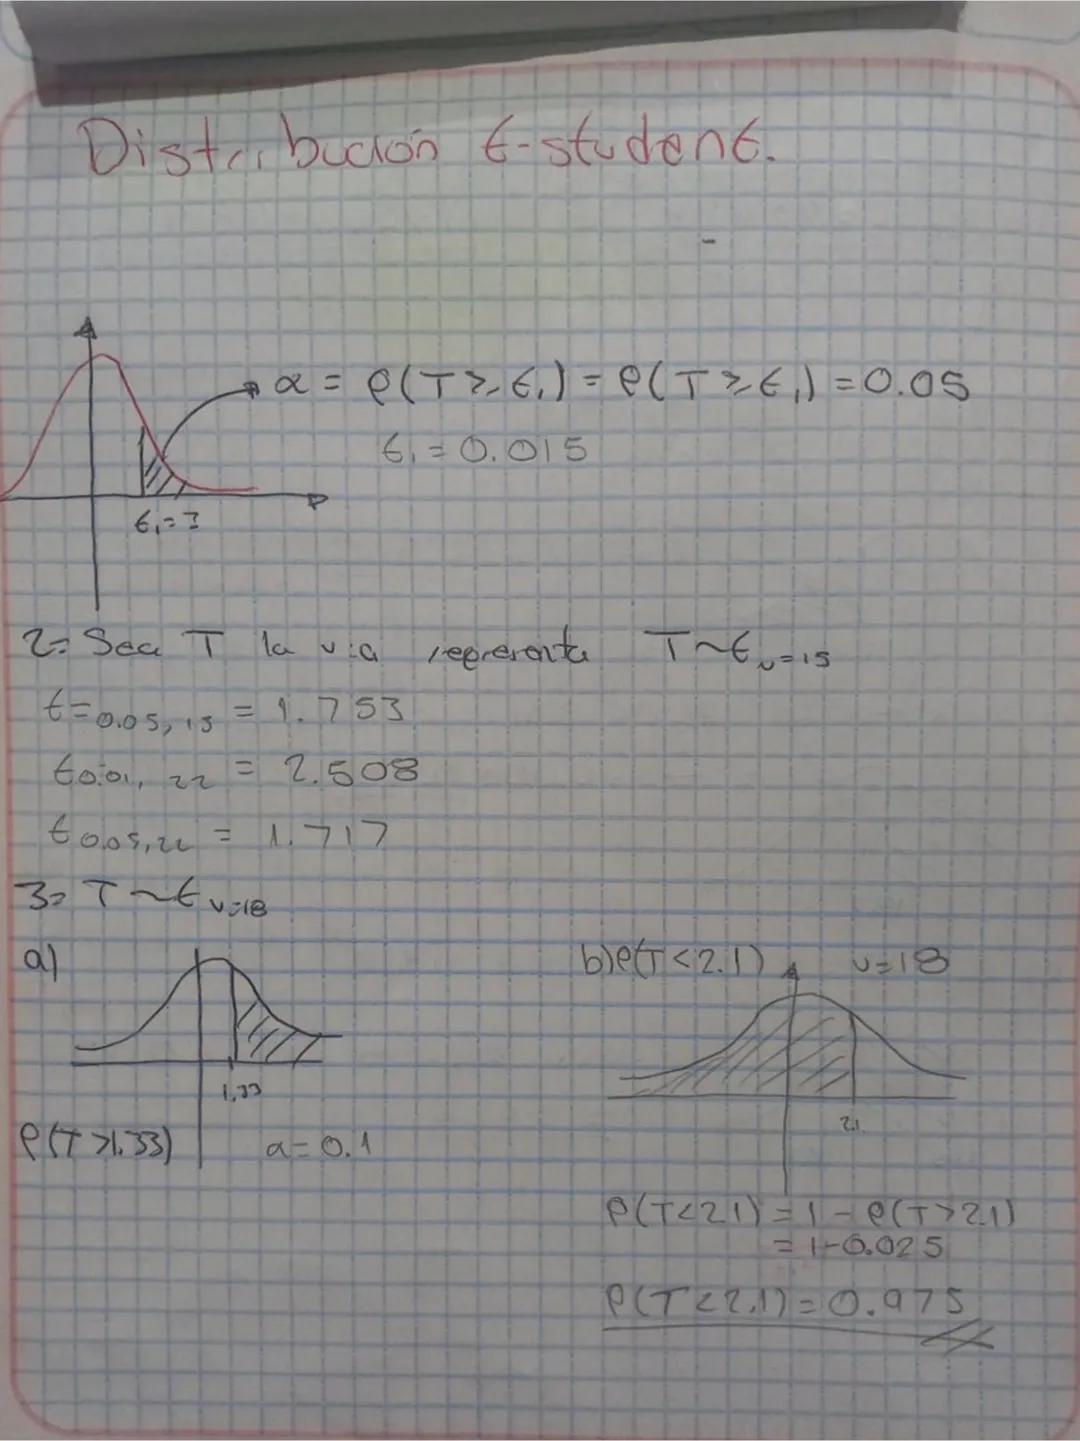 Distribución t-student.
α = P(T ≥ t₁) = P(T ≥ t₁) = 0.05
t₁ = 0.015
t₁ = ?
2= Sea T la v.a representa T~t v=15
t=0.05, 15 = 1.753
t0.01, 22 = 2.508
t0.05, 22 = 1.717
3= T~t v=18
a)
1.33
P(T>1.33) α=0.1
b) P(T<2.1) v=18
2.1
P(T<2.1) = 1 - P(T>2.1)
= 1-0.025
P(T<2.1) = 0.975